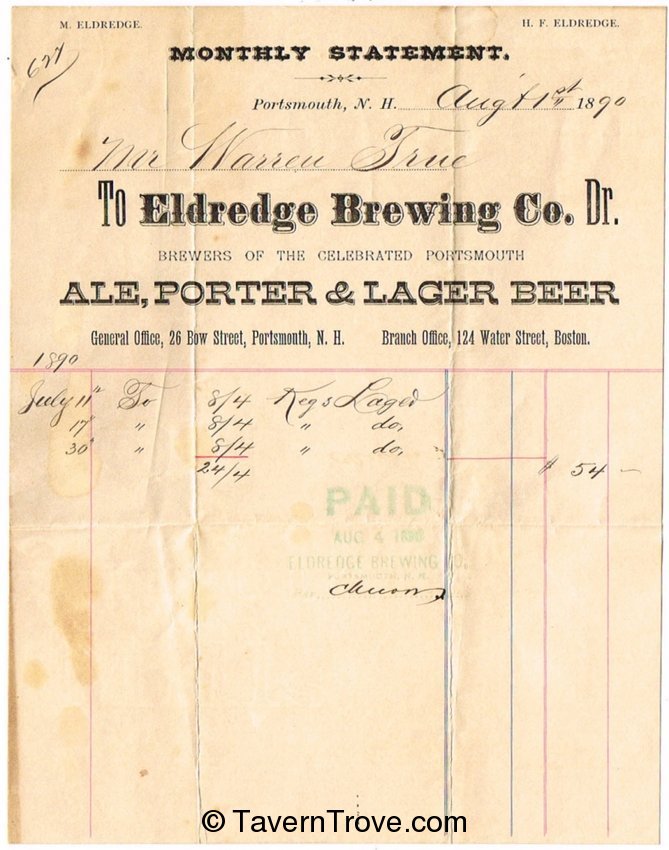 M. ELDREDGE. H. F. ELDREDGE.
MONTHLY STATEMENT.
627
Portsmouth, N. H. Aug't 1st 1890
Mr Warren True
To Eldredge Brewing Co. Dr.
BREWERS OF THE CELEBRATED PORTSMOUTH
ALE, PORTER & LAGER BEER
General Office, 26 Bow Street, Portsmouth, N. H. Branch Office, 124 Water Street, Boston.
1890
July 11" To 8/4 Kegs Lager
17" " 8/4 " do,
30" " 8/4 " do,
24/4 $ 54 —
PAID
AUG 4 1890
ELDREDGE BREWING CO.
PORTSMOUTH, N. H.
© TavernTrove.com